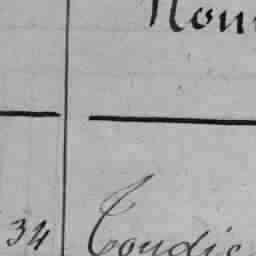 Nom
34 Coudie